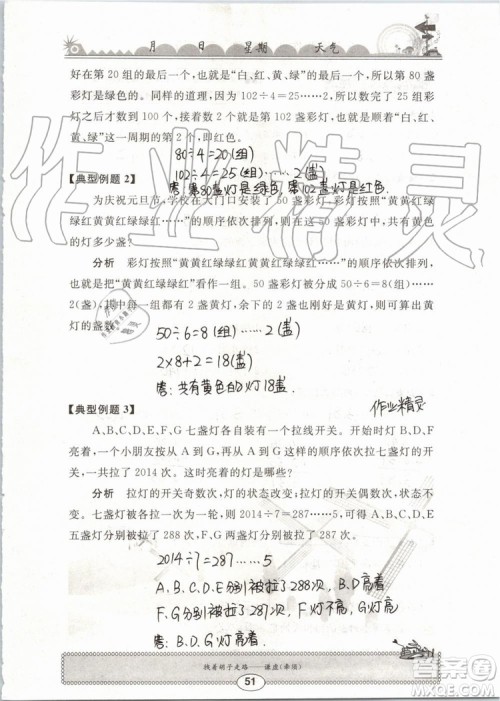 月 日 星期 天气
好在第 20 组的最后一个,也就是“白、红、黄、绿”的最后一个,所以第 80 盏
彩灯是绿色的。同样的道理,因为 102÷4=25……2,所以数完了 25 组彩
灯之后才数到 100 个,接着数 2 个就是第 102 盏彩灯,也就是“白、红、
黄、绿”这一周期的第 2 个,即红色。
80÷4=20(组)
102÷4=25(组)……2(盏)
答:第80盏灯是绿色,第102盏灯是红色
【典型例题 2】
为庆祝元旦节,学校在大门口安装了 50 盏彩灯,彩灯按照“黄黄红绿
绿红黄黄红绿绿红……”的顺序依次排列,则在这 50 盏彩灯中,共有黄色
的灯多少盏?
分析 彩灯按照“黄黄红绿绿红黄黄红绿绿红……”的顺序依次排列,
也就是把“黄黄红绿绿红”看作一组。50 盏彩灯被分成 50÷6=8(组)……
2(盏),其中每一组有 2 盏黄灯,余下的 2 盏也刚好是黄灯,所以可算出黄
灯的盏数。
50÷6=8(组)……2(盏)
2×8+2=18(盏)
答:共有黄色的灯18盏
作业精灵
【典型例题 3】
A、B、C、D、E、F、G 七盏灯各有一个拉线开关。开始时灯 B、D、F
亮着,一个小朋友按从 A 到 G,再从 A 到 G……这样的顺序依次拉七盏灯的开
关,一共拉了 2014 次。这时亮着的灯是哪些?
分析 拉灯的开关奇数次,灯的状态改变,拉灯的开关偶数次,状态不
变。A 到 G 各被拉一次为一轮,则 2014÷7=287……5,A、B、C、D、E
五盏灯分别被拉了 288 次,F、G 两盏灯分别被拉了 287 次。
2014÷7=287……5
A、B、C、D、E分别被拉了288次,B、D亮着
F、G分别被拉了287次,F灯不亮,G灯亮着
答:B、D、G亮着
找着胡子走路——谦虚(牵须)
51
作业精灵
答案圈